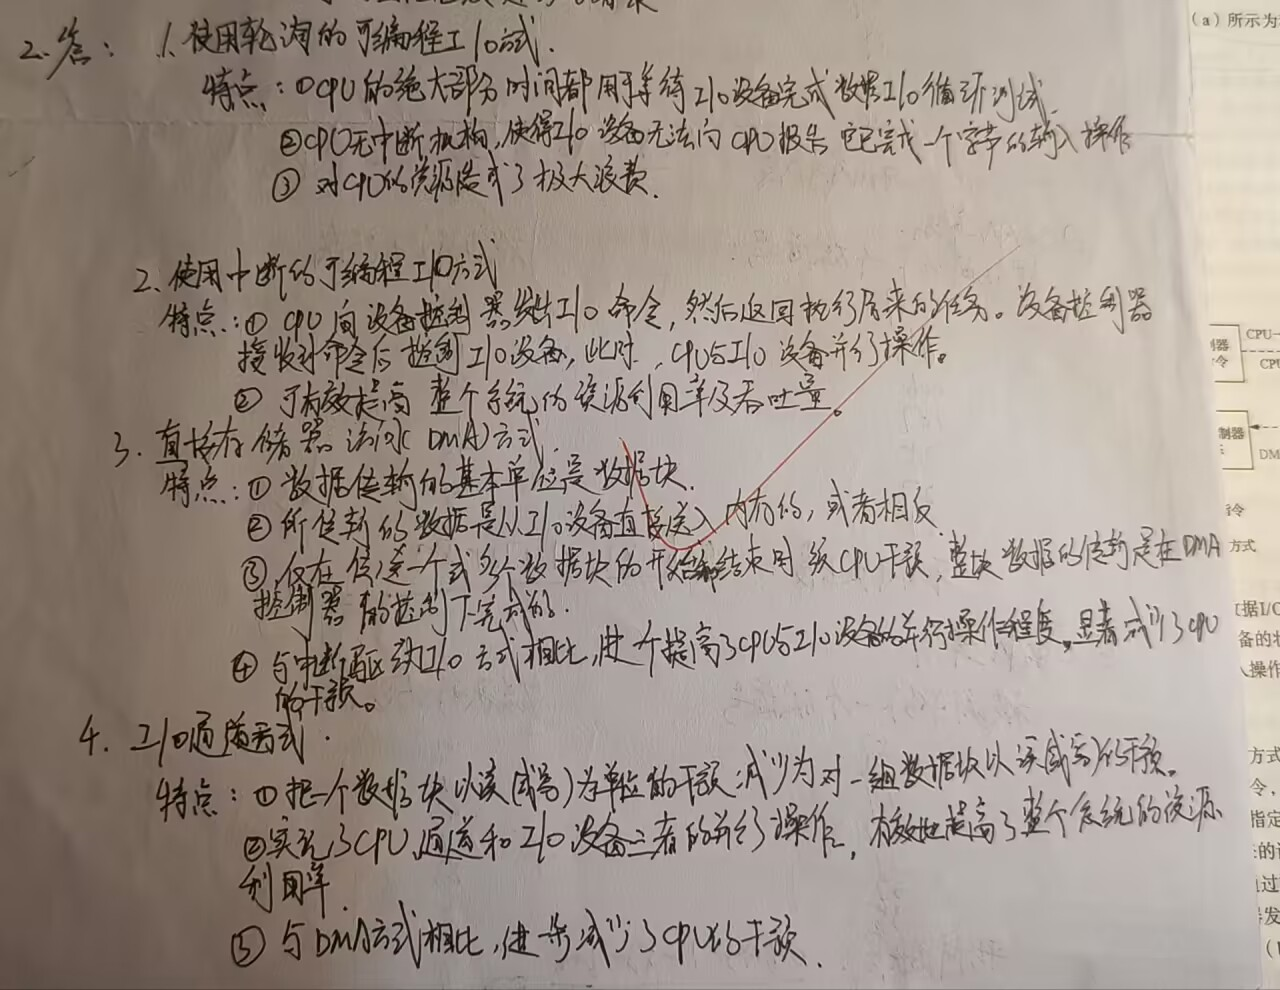 2.答：1.使用轮询的可编程I/O方式.
特点：①CPU的绝大部分时间都用于等待I/O设备完成数据I/O循环测试.
②CPU无中断机构,使得I/O设备无法向CPU报告它已完成一个字节的输入操作
③ 对CPU的资源造成了极大浪费.
2.使用中断的可编程I/O方式
特点：① CPU向设备控制器发出I/O命令，然后返回执行原来的任务。设备控制器
接收到命令后控制I/O设备，此时，CPU与I/O设备并行操作。
② 可有效提高整个系统的资源利用率及吞吐量。
3.直接存储器访问(DMA)方式.
特点：① 数据传输的基本单位是数据块.
② 所传输的数据是从I/O设备直接送入内存的，或者相反
③ 仅在传送一个或多个数据块的开始和结束时须CPU干预,整块数据的传输是在DMA
控制器的控制下完成的.
④ 与中断驱动I/O方式相比,进一步提高了CPU与I/O设备的并行操作程度。显著减少了CPU
的干预。
4.I/O通道方式.
特点：①把一个数据块以读(或写)为单位的干预减少为对一组数据块以读(或写)的干预。
②实现了CPU,通道和I/O设备三者的并行操作，有效地提高了整个系统的资源
利用率.
③ 与DMA方式相比,进一步减少了CPU的干预.
(a) 所示为
CPU
制器
CP
制器
DM
令
方式
据I/O
备的
操作
方式
令,
指定
的
通过